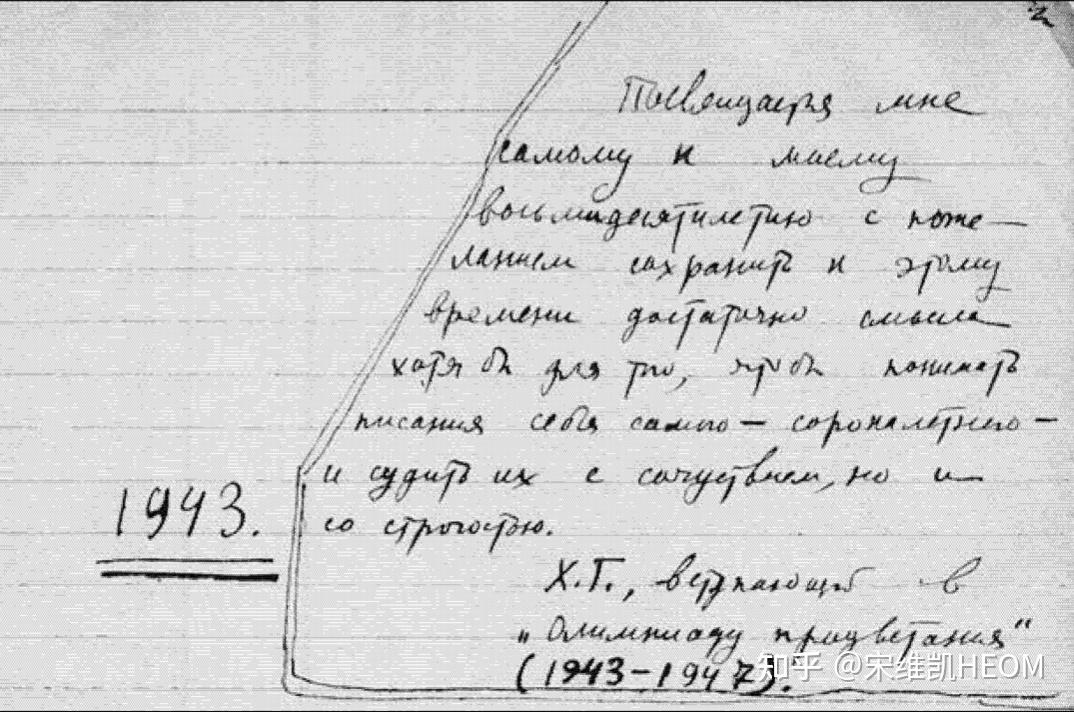 Посвящается мне
самому к моему
восьмидесятилетию с поже-
ланием сохранить к этому
времени достаточно смысла
хотя бы для того, чтобы понимать
писания себя самого – сорокалетнего –
и судить их с сочувствием, но и
со строгостью.
1943.
Х.Г., вступающий в
„Олимпиаду процветания“
(1943–1947).
知乎 @宋维凯HEOM